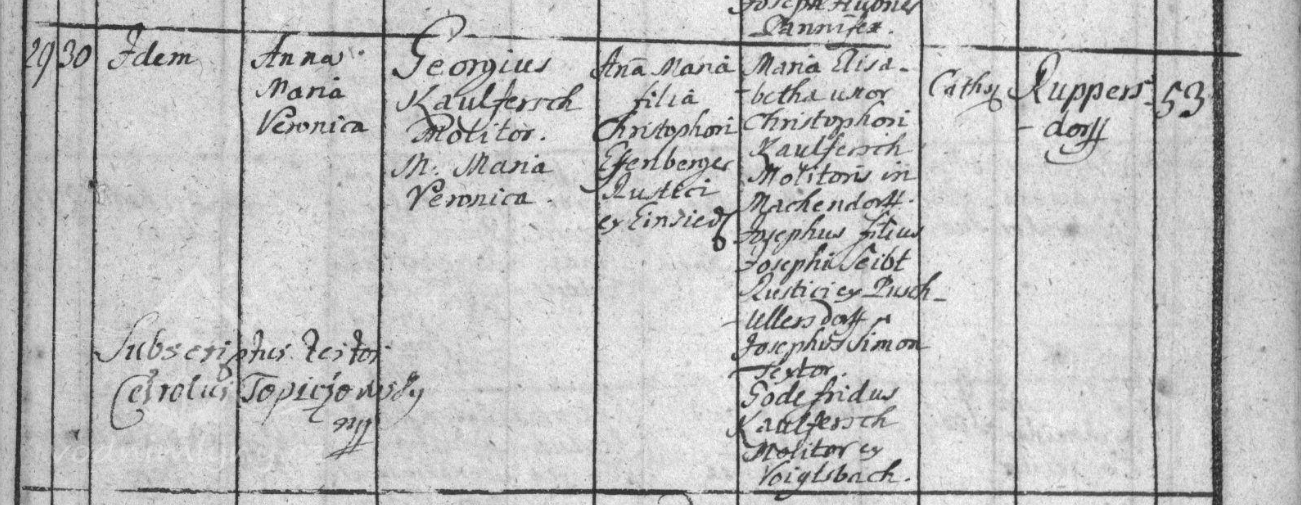 Joseph Hübner
Pannifex.
29
30
Idem
Anna
Maria
Veronica
Georgius
Kaulfersch
Molitor.
M. Maria
Veronica.
Aña Maria
filia
Christophori
Effenberger
Rustici
ex Einsied
Maria Elisa-
betha uxor
Christophori
Kaulfersch
Molitoris in
Machendorff.
Josephus filius
Josephi Seibt
Rustici ex Pusch-
Ullersdorff
Josephus Simon
Textor.
Godefridus
Kaulfersch
Molitor ex
Voigtsbach.
Cathol
Ruppers-
dorff
53
Subscriptus testor
Carolus